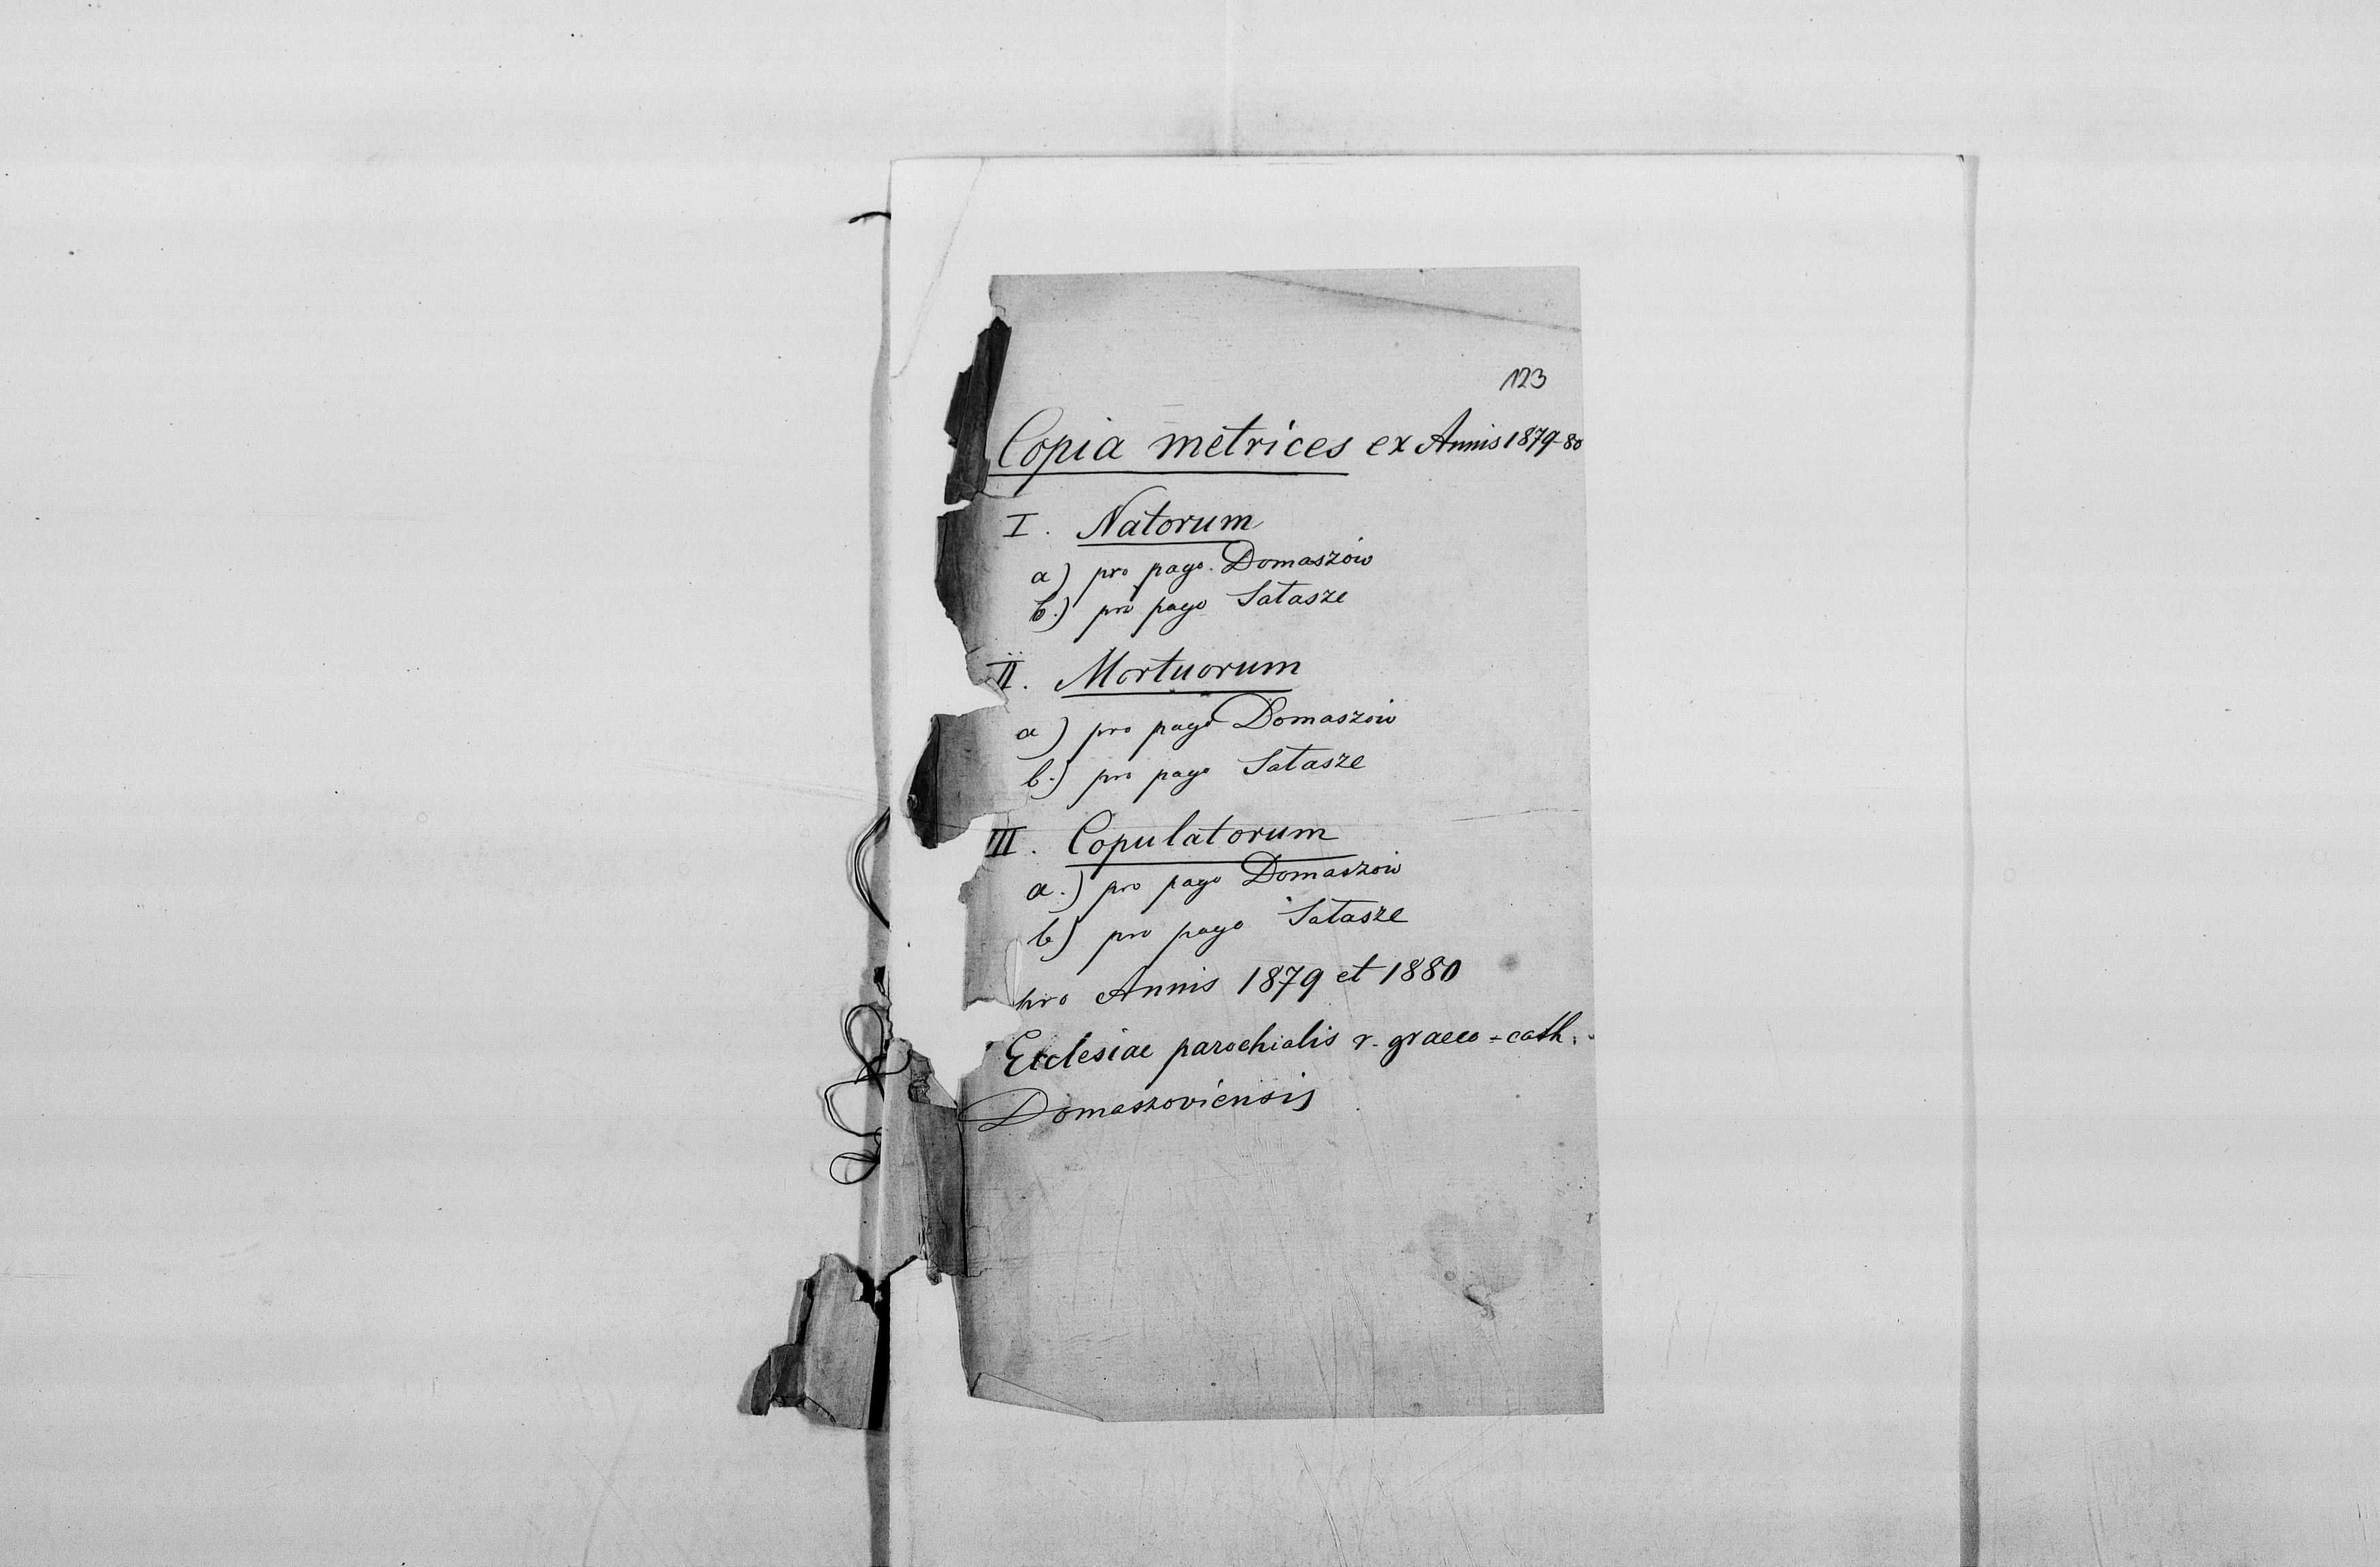 123
Copia metrices ex Annis 1879-80
I. Natorum
a) pro pago Domaszów
b.) pro pago Sałasze
II. Mortuorum
a) pro pago Domaszów
b.) pro pago Sałasze
III. Copulatorum
a.) pro pago Domaszów
b) pro pago Sałasze
pro Annis 1879 et 1880
Ecclesiae parochialis r. graeco-cath:
Domaszoviensis